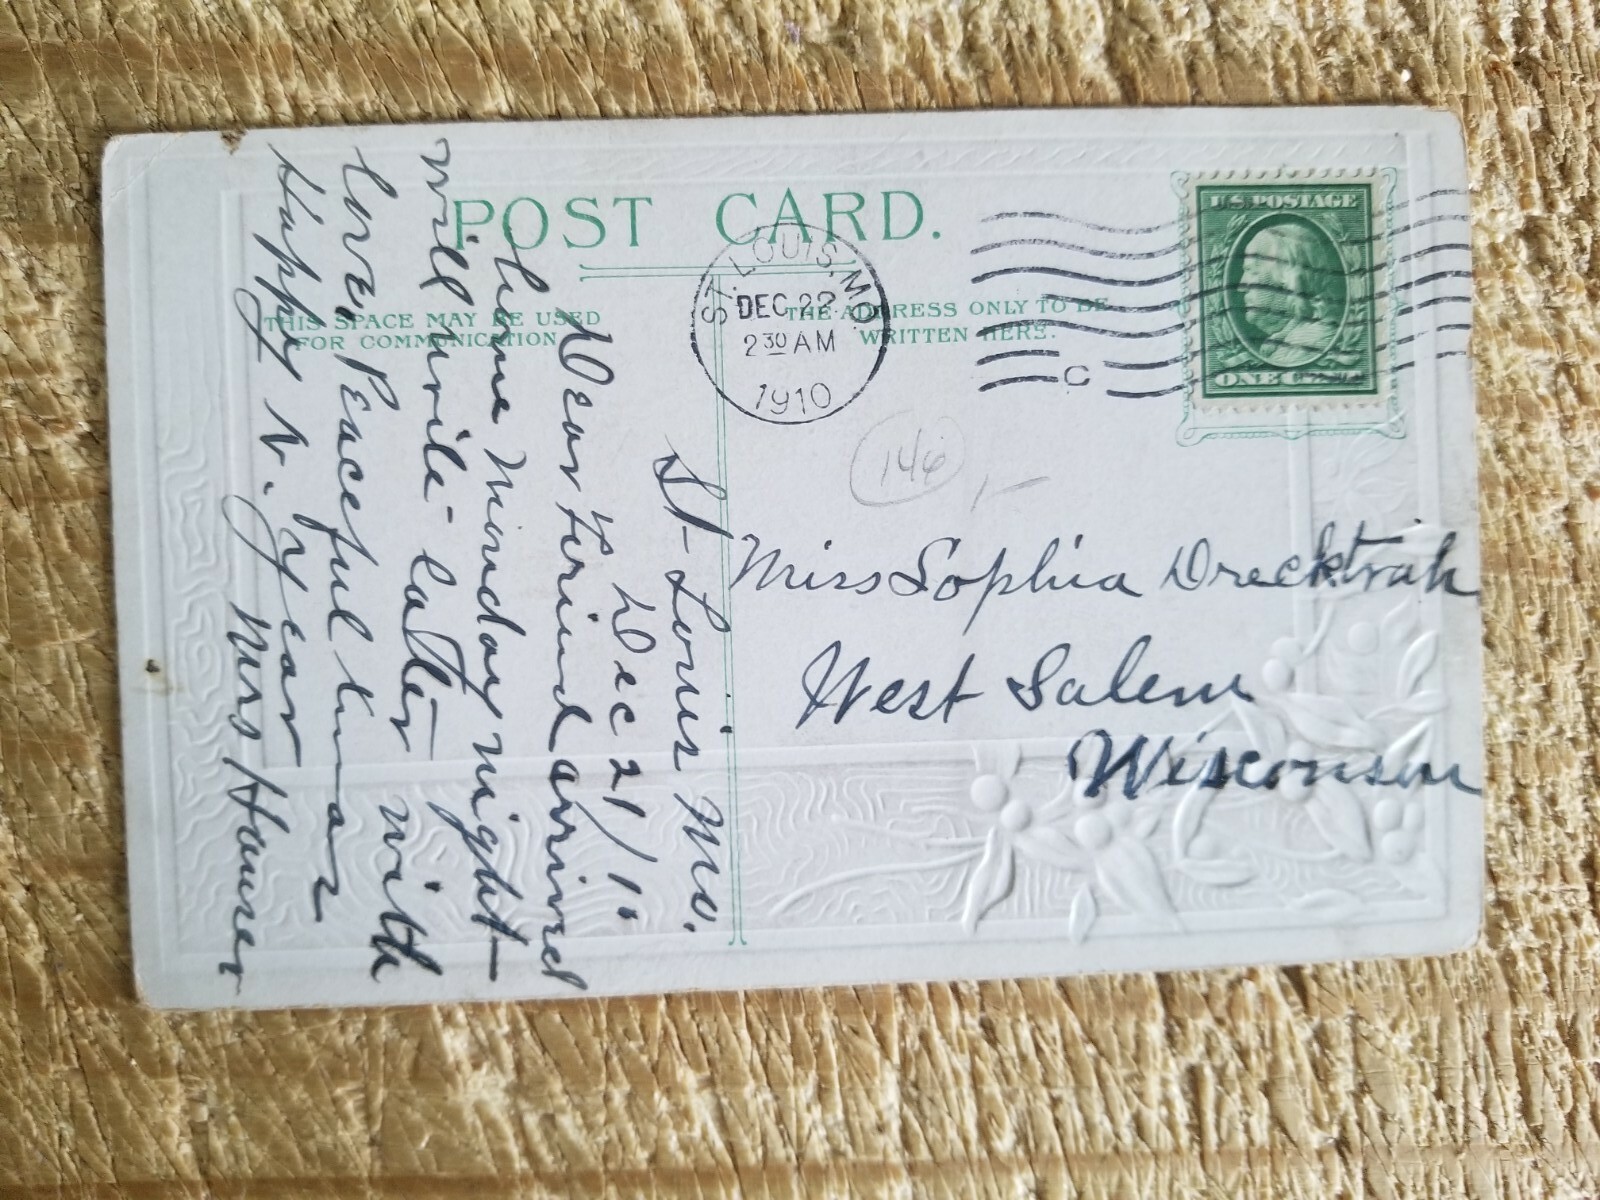 POST CARD.
THIS SPACE MAY BE USED
FOR COMMUNICATION
THE ADDRESS ONLY TO BE
WRITTEN HERE.
ST. LOUIS, MO.
DEC 22
2 30 AM
1910
C
U.S. POSTAGE
ONE CENT
146
Miss Sophia Drecktrah
West Salem
Wisconsin
St Louis Mo.
Dec 21/
Dear Friend arrived
home Monday night
will write later with
love, Peaceful Xmas
Happy N. Year
Mrs Hamer